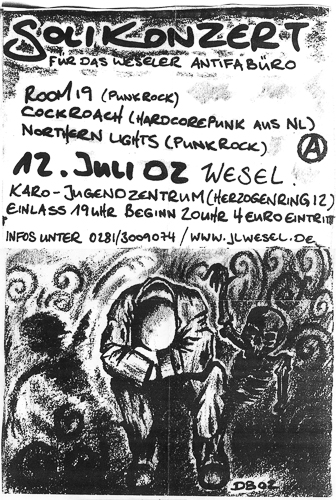 SOLIKONZERT
FÜR DAS WESELER ANTIFABÜRO
ROOM 19 (PUNKROCK)
COCKROACH (HARDCOREPUNK AUS NL)
NORTHERN LIGHTS (PUNKROCK)
A
12. JULI 02 WESEL!
KARO-JUGENDZENTRUM (HERZOGENRING 12)
EINLASS 19 UHR BEGINN 20 UHR 4 EURO EINTRITT
INFOS UNTER 0281/3009074 / WWW.JLWESEL.DE
DB02